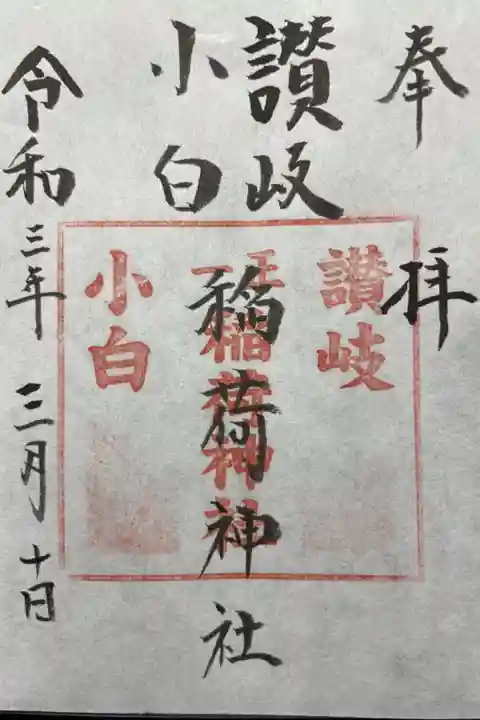 奉拝
讃岐
小白
稲荷神社
令和三年三月十日
讃岐
稲荷神社
小白